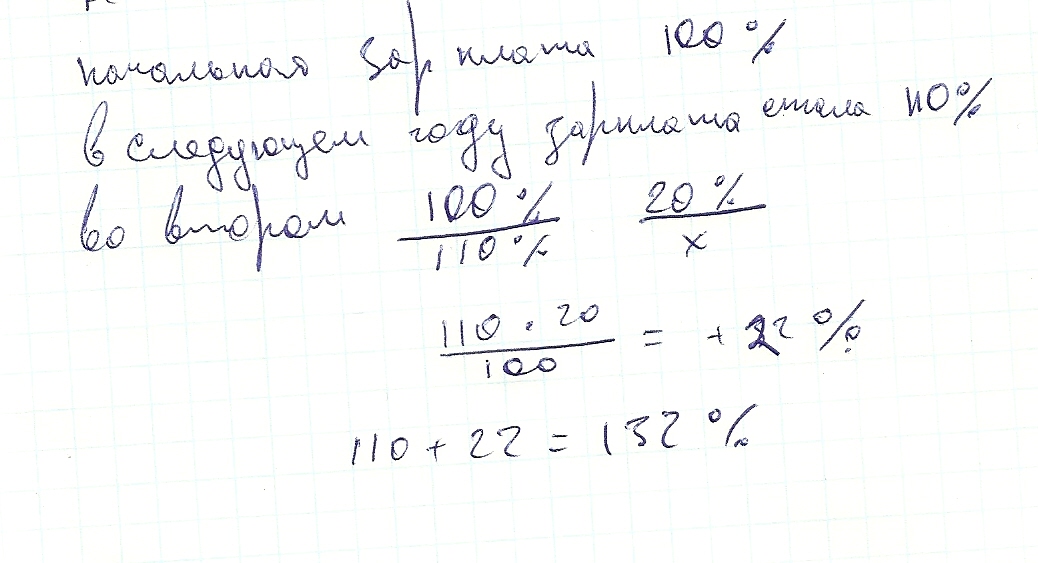 начальная зарплата 100%
в следующем году зарплата стала 110%
во втором 100% / 110% 20% / x
110 . 20 / 100 = + 22%
110 + 22 = 132%